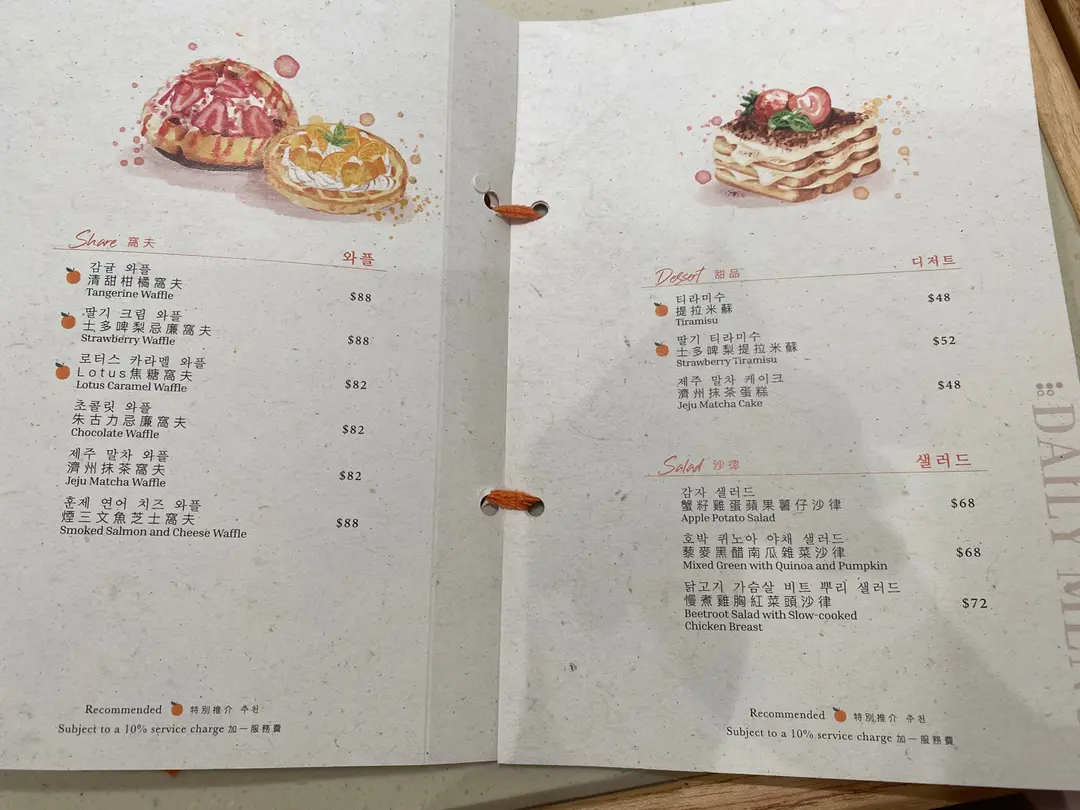 Share 窩夫 와플
감귤 와플
清甜柑橘窩夫
Tangerine Waffle $88
딸기 크림 와플
士多啤梨忌廉窩夫
Strawberry Waffle $88
로터스 카라멜 와플
Lotus焦糖窩夫
Lotus Caramel Waffle $82
초콜릿 와플
朱古力忌廉窩夫
Chocolate Waffle $82
제주 말차 와플
濟州抹茶窩夫
Jeju Matcha Waffle $82
훈제 연어 치즈 와플
煙三文魚芝士窩夫
Smoked Salmon and Cheese Waffle $88
Recommended 特別推介 추천
Subject to a 10% service charge 加一服務費
Dessert 甜品 디저트
티라미수
提拉米蘇
Tiramisu $48
딸기 티라미수
士多啤梨提拉米蘇
Strawberry Tiramisu $52
제주 말차 케이크
濟州抹茶蛋糕
Jeju Matcha Cake $48
Salad 沙律 샐러드
감자 샐러드
蟹籽雞蛋蘋果薯仔沙律
Apple Potato Salad $68
호박 퀴노아 야채 샐러드
藜麥黑醋南瓜雜菜沙律
Mixed Green with Quinoa and Pumpkin $68
닭고기 가슴살 비트 뿌리 샐러드
慢煮雞胸紅菜頭沙律
Beetroot Salad with Slow-cooked
Chicken Breast $72
Recommended 特別推介 추천
Subject to a 10% service charge 加一服務費
DAILY